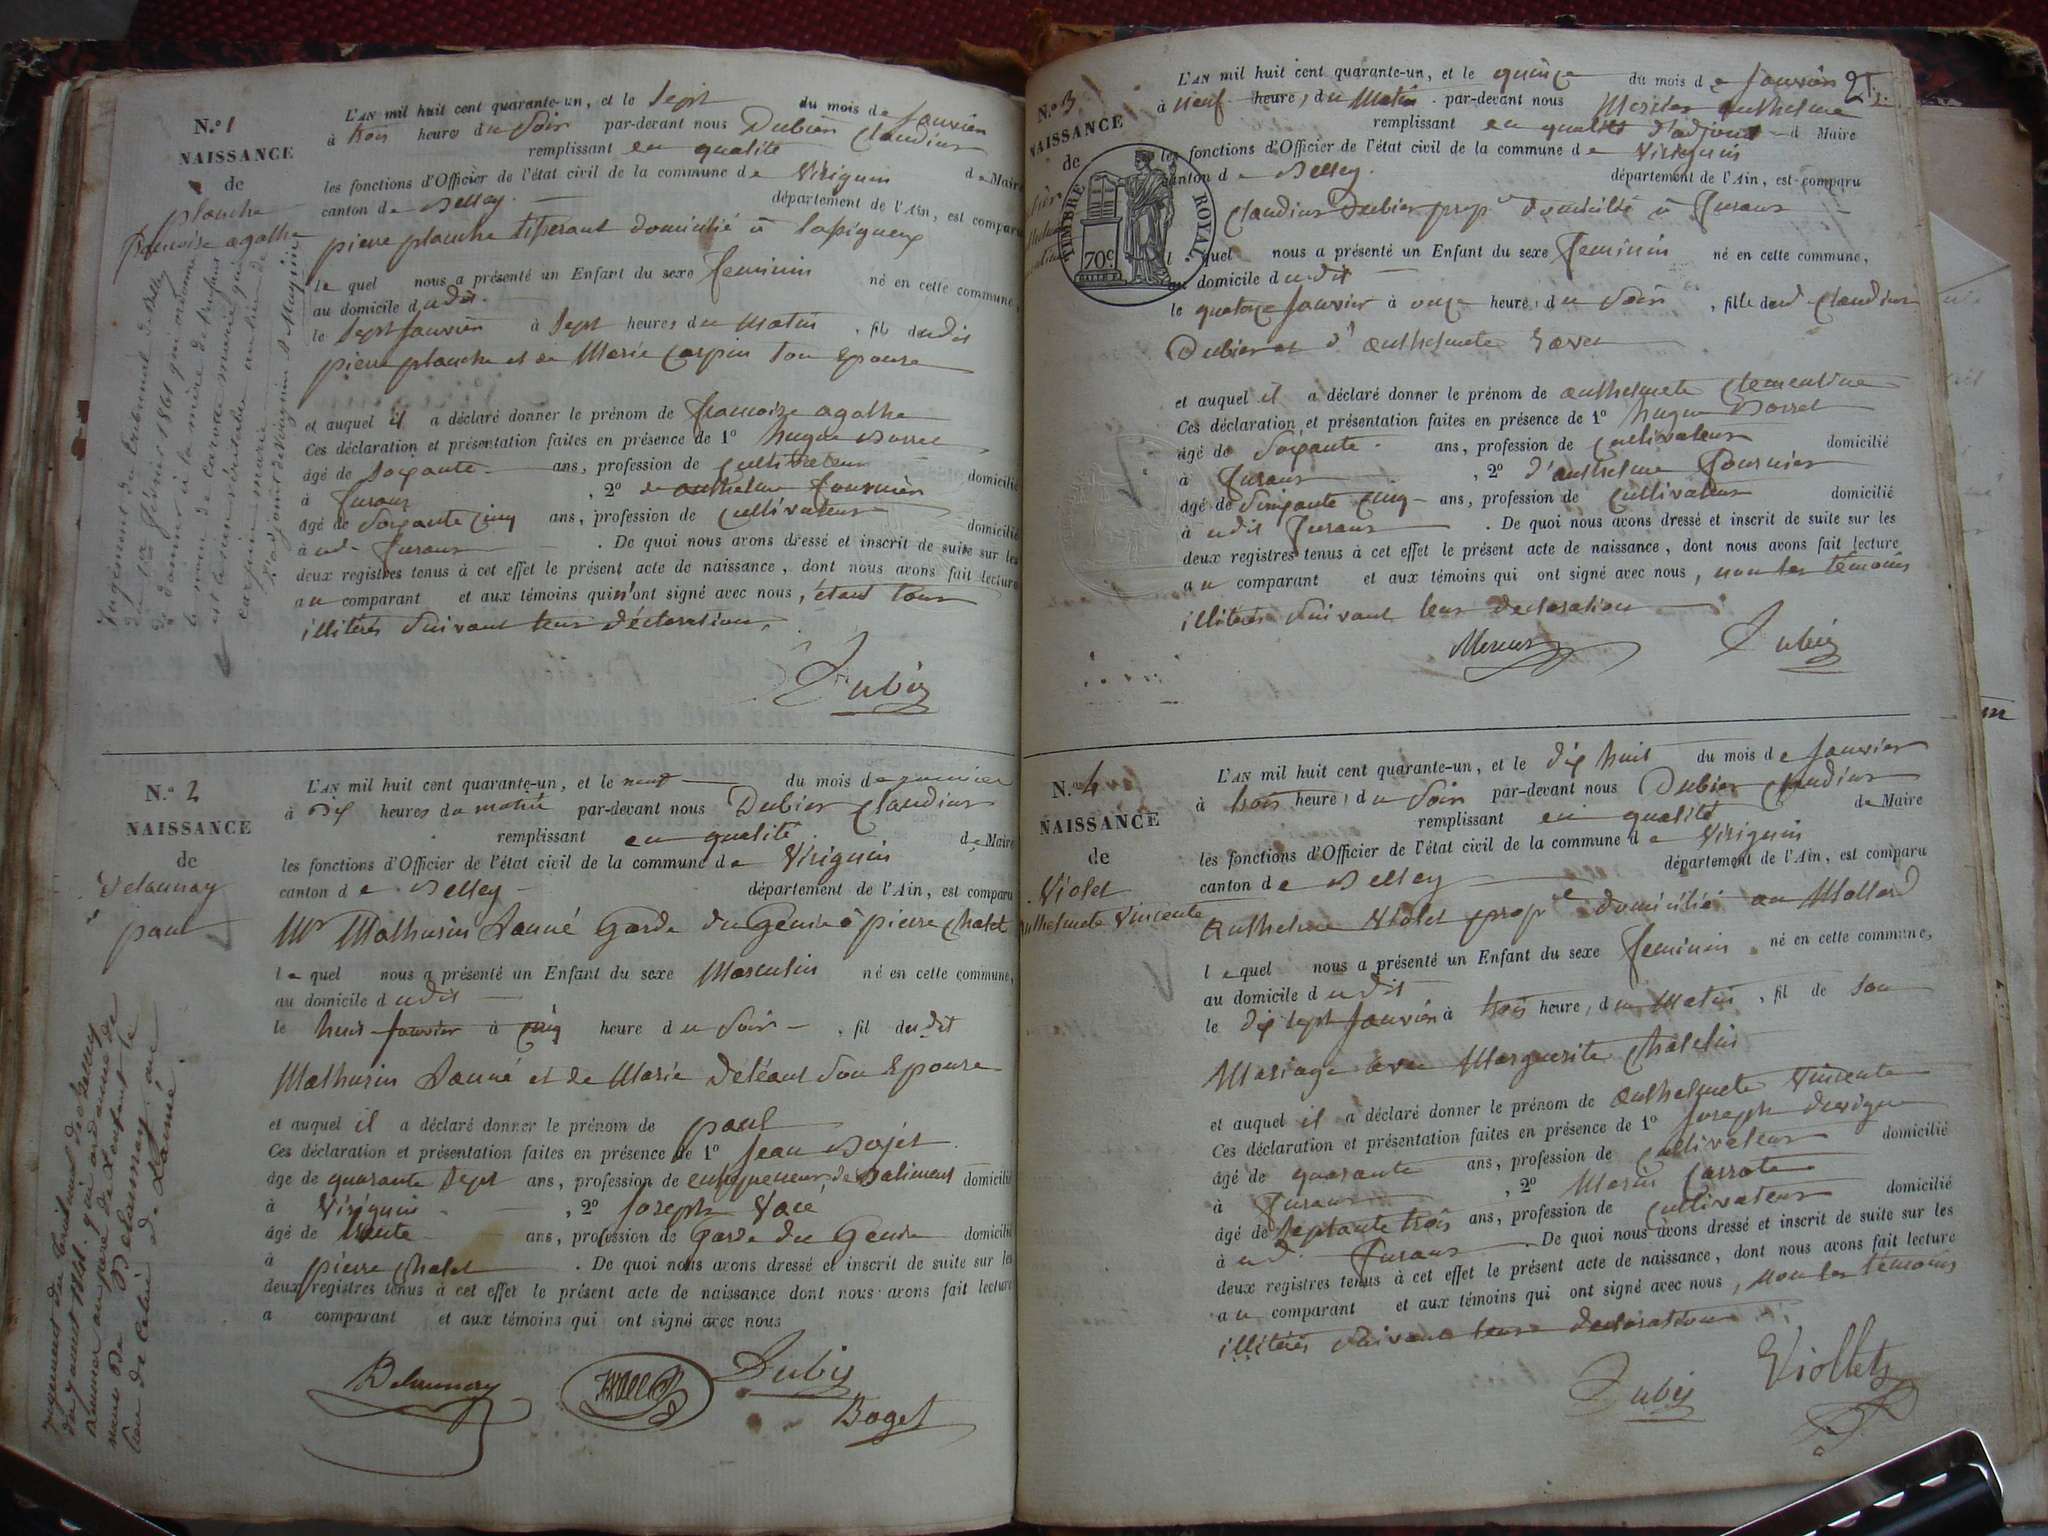 N.o 1
NAISSANCE
de
planche
francoise agathe
L'AN mil huit cent quarante-un, et le Sept du mois de Janvier
à trois heures du Soir par-devant nous Dubier Claudius
remplissant en qualité de Maire
les fonctions d'Officier de l'état civil de la commune de Virignin
canton de Belley département de l'Ain, est comparu
pierre planche tisserant domicilié à
le quel nous a présenté un Enfant du sexe feminin né en cette commune,
au domicile dudit
le Sept Janvier à Sept heures du Matin, fil dudit
pierre planche et de Marie Carpin Son Epouse
et auquel il a déclaré donner le prénom de francoise agathe
Ces déclaration et présentation faites en présence de 1o hugue Borret
âgé de Soixante ans, profession de Cultivateur domicilié
à furans, 2o de anthelme fournier
âgé de Soixante Cinq ans, profession de Cultivateur domicilié
à ud. furans. De quoi nous avons dressé et inscrit de suite sur les
deux registres tenus à cet effet le présent acte de naissance, dont nous avons fait lecture
au comparant et aux témoins qui n'ont signé avec nous, étant tous
illiterés Suivant leur déclaration.
Dubier
Jugement du tribunal de Belley
1861 qui ordonne
de donner à la mère de l'enfant
le nom de
N.o 2
NAISSANCE
de
Delaunay
paul
L'AN mil huit cent quarante-un, et le neuf du mois de janvier
à Dix heures du matin par-devant nous Dubier Claudius
remplissant en qualité de Maire
les fonctions d'Officier de l'état civil de la commune de Virignin
canton de Belley département de l'Ain, est comparu
Mr Mathurin Launé Garde du Génie à pierre Chatel
le quel nous a présenté un Enfant du sexe Masculin né en cette commune,
au domicile dudit
le huit Janvier à cinq heure du Soir, fil dudit
Mathurin Launé et de Marie Deléant Son Epouse
et auquel il a déclaré donner le prénom de paul
Ces déclaration et présentation faites en présence de 1o Jean Bojet
âgé de quarante Sept ans, profession de entrepreneur de Batiment domicilié
à Virignin, 2o Joseph
âgé de trente ans, profession de Garde du Genie domicilié
à pierre Chatel. De quoi nous avons dressé et inscrit de suite sur les
deux registres tenus à cet effet le présent acte de naissance dont nous avons fait lecture
a comparant et aux témoins qui ont signé avec nous
Delaunay
Dubier
Boget
Jugement du tribunal de Belley
du 1861 qui ordonne de
donner au père de l'enfant le
nom de Delaunay au
lieu de celui de Launé.
N.o 3
NAISSANCE
de
TIMBRE ROYAL
70c
L'AN mil huit cent quarante-un, et le quinze du mois de Janvier
à neuf heure, du Matin par-devant nous Mercier anthelme
remplissant en qualité d'adjoint d Maire
les fonctions d'Officier de l'état civil de la commune de Virignin
canton de Belley département de l'Ain, est comparu
Claudius Dubier propre domicilié à furans
l quel nous a présenté un Enfant du sexe feminin né en cette commune,
au domicile dudit
le quatorze Janvier à onze heure, du Soir, fille dud. Claudius
Dubier et d'anthelmete
et auquel il a déclaré donner le prénom de anthelmete Clementine
Ces déclaration et présentation faites en présence de 1o hugue Borret
âgé de Soixante ans, profession de Cultivateur domicilié
à furans, 2o d'anthelme fournier
âgé de Soixante Cinq ans, profession de Cultivateur domicilié
à udit furans. De quoi nous avons dressé et inscrit de suite sur les
deux registres tenus à cet effet le présent acte de naissance, dont nous avons fait lecture
au comparant et aux témoins qui ont signé avec nous, non les témoins
illiterés Suivant leur declaration
Mercier Dubier
N.o 4
NAISSANCE
de
Violet
anthelmete Vincente
L'AN mil huit cent quarante-un, et le dix huit du mois de Janvier
à trois heure, du Soir par-devant nous Dubier Claudius
remplissant en qualité de Maire
les fonctions d'Officier de l'état civil de la commune de Virignin
canton de Belley département de l'Ain, est comparu
Anthelme Violet propre domicilié au Mollard
lequel nous a présenté un Enfant du sexe feminin né en cette commune,
au domicile dudit
le dix Sept Janvier à trois heure, du Matin, fil de Son
Mariage avec Marguerite Chatelin
et auquel il a déclaré donner le prénom de anthelmete Vincente
Ces déclaration et présentation faites en présence de 1o Joseph
âgé de quarante ans, profession de Cultivateur domicilié
à furans, 2o Marin
âgé de Septante trois ans, profession de Cultivateur domicilié
à ud. furans. De quoi nous avons dressé et inscrit de suite sur les
deux registres tenus à cet effet le présent acte de naissance, dont nous avons fait lecture
au comparant et aux témoins qui ont signé avec nous, non les témoins
illiterés Suivant leur declaration
Dubier Viollet